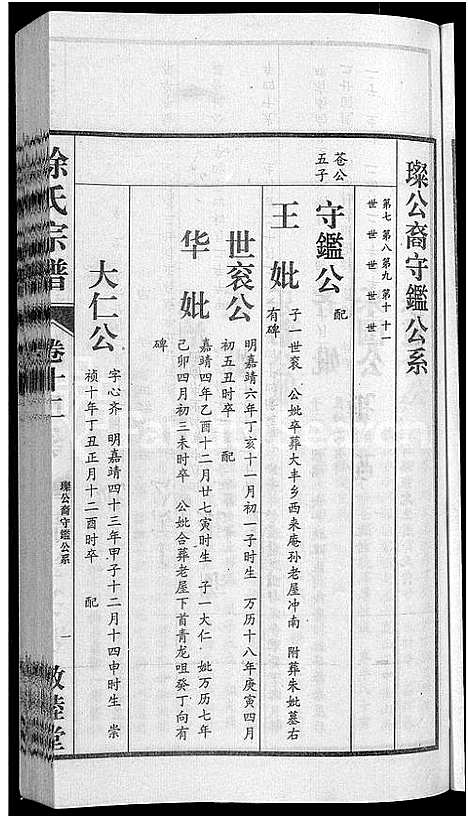 璨公裔守鑑公系
第七世
第八世
第九世
第十世
十一世
苍公五子
守鑑公 配
王妣 子一世衮 公妣卒葬大丰乡西来庵孙老屋冲南 附葬朱妣墓右
有碑
世衮公 明嘉靖六年丁亥十一月初一子时生 万历十八年庚寅四月
初五丑时卒 配
华妣 嘉靖四年乙酉十二月廿七寅时生 子一大仁 妣万历七年
己卯四月初三未时卒 公妣合葬老屋下首青龙咀癸丁向有
碑
大仁公 字心齐 明嘉靖四十三年甲子十二月十四申时生 崇
祯十年丁丑正月十二酉时卒 配
徐氏宗谱
卷十二
璨公裔守鑑公系
一
敦睦堂